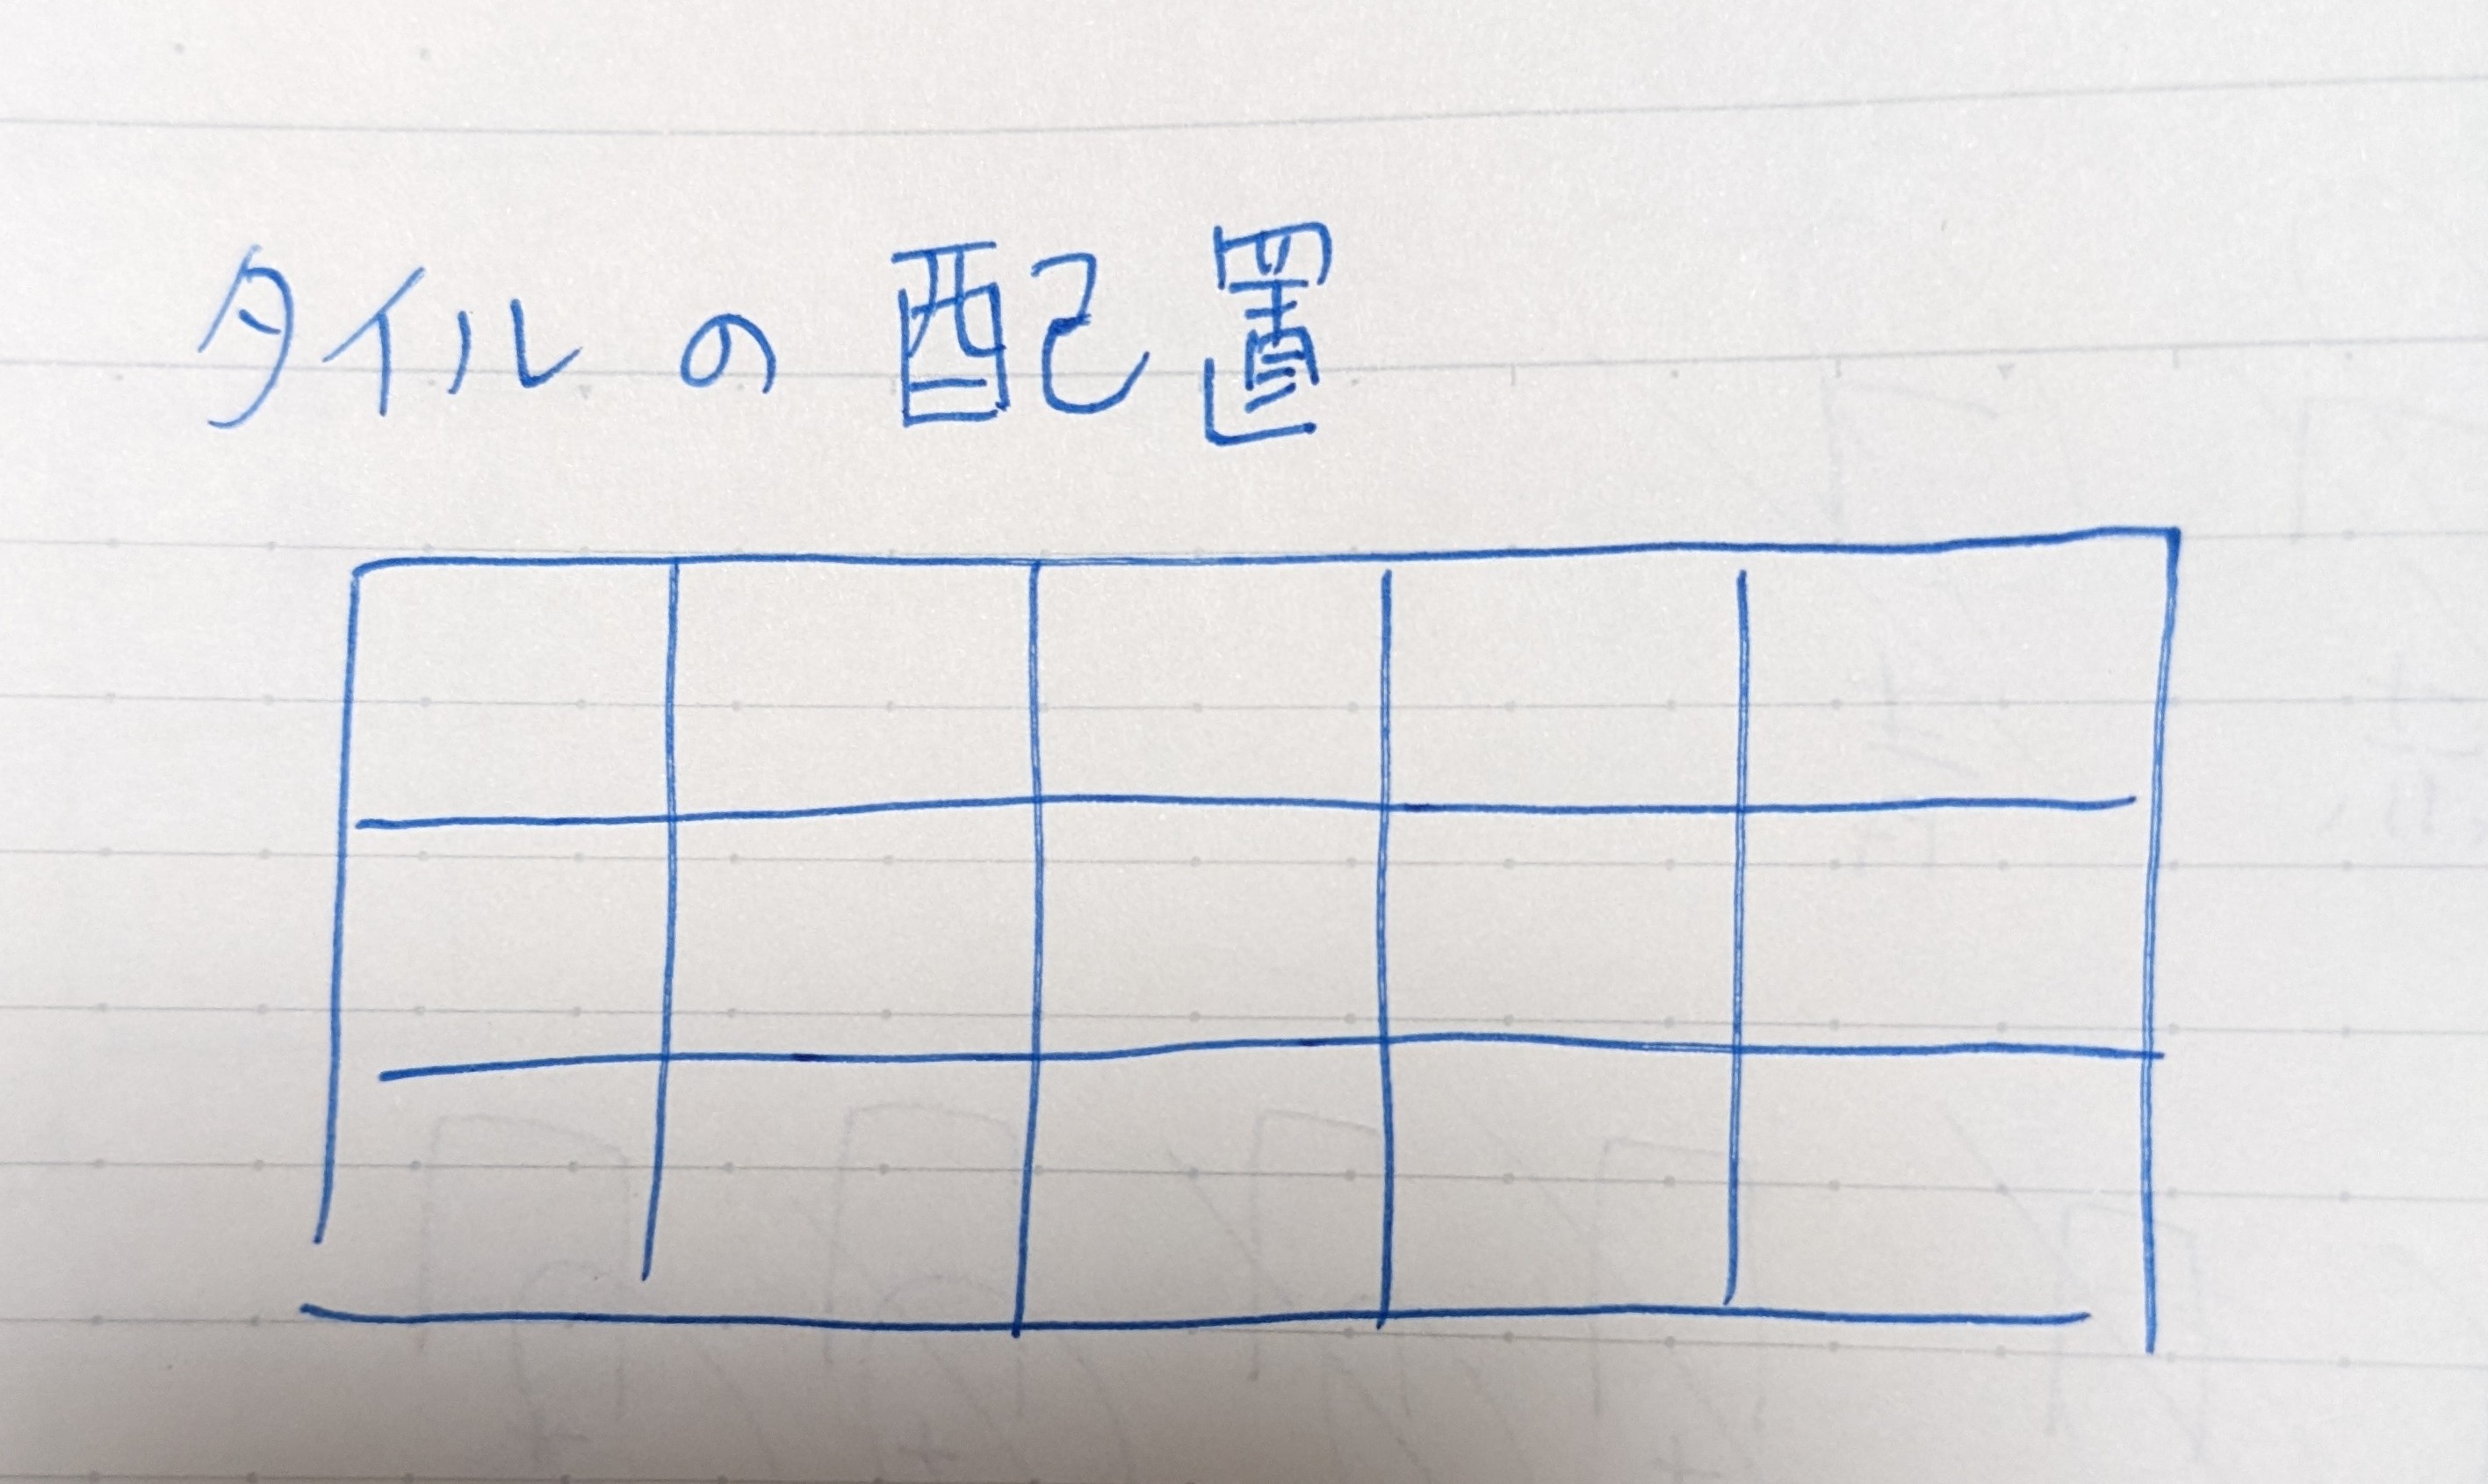 タイルの配置